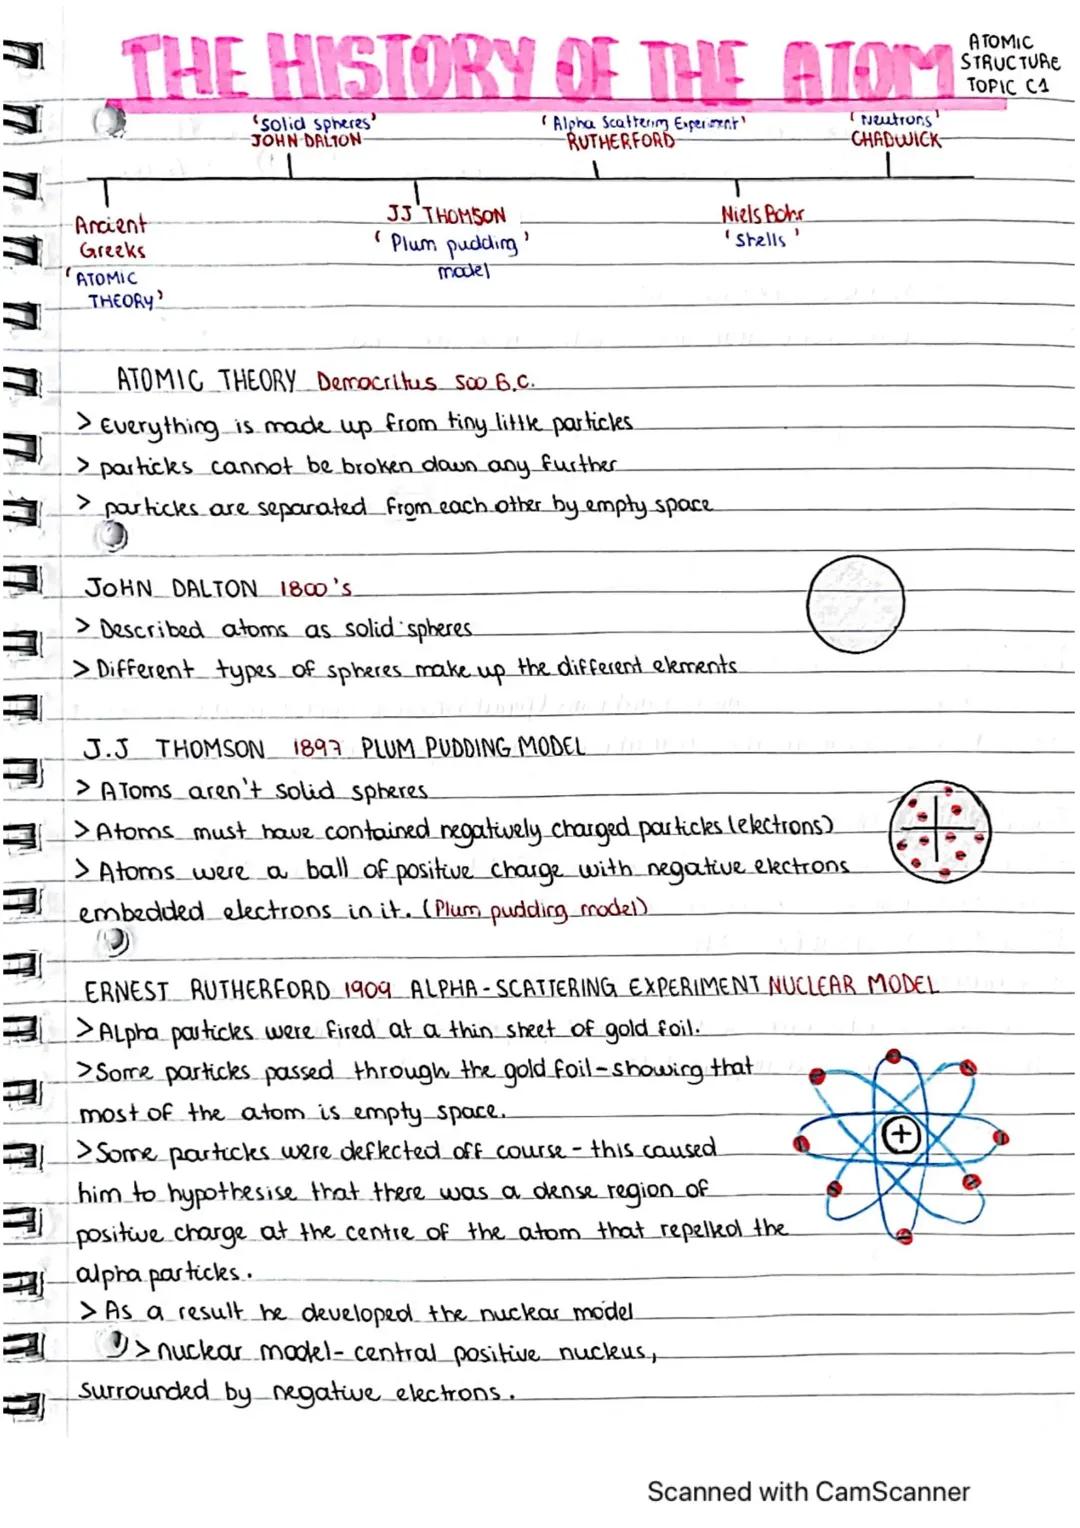 THE HISTORY OF THE ATOM
ATOMIC
STRUCTURE
TOPIC C1
'solid spheres'
JOHN DALTON
'Alpha Scattering Experiment'
RUTHERFORD
'Neutrons'
CHADWICK
Ancient
Greeks
'ATOMIC
THEORY'
JJ THOMSON
'Plum pudding'
model
Niels Bohr
'Shells'
ATOMIC THEORY Democritus 500 B.C.
> Everything is made up from tiny little particles
> particles cannot be broken down any further
> particles are separated from each other by empty space
JOHN DALTON 1800's
> Described atoms as solid spheres
> Different types of spheres make up the different elements
J.J THOMSON 1897 PLUM PUDDING MODEL
> Atoms aren't solid spheres
> Atoms must have contained negatively charged particles (electrons)
> Atoms were a ball of positive charge with negative electrons
embedded electrons in it. (Plum pudding model)
ERNEST RUTHERFORD 1909 ALPHA-SCATTERING EXPERIMENT NUCLEAR MODEL
> Alpha particles were fired at a thin sheet of gold foil.
> Some particles passed through the gold foil - showing that
most of the atom is empty space.
> Some particles were deflected off course - this caused
him to hypothesise that there was a dense region of
positive charge at the centre of the atom that repelled the
alpha particles.
> As a result he developed the nuclear model
> nuclear model - central positive nucleus,
surrounded by negative electrons.
Scanned with CamScanner